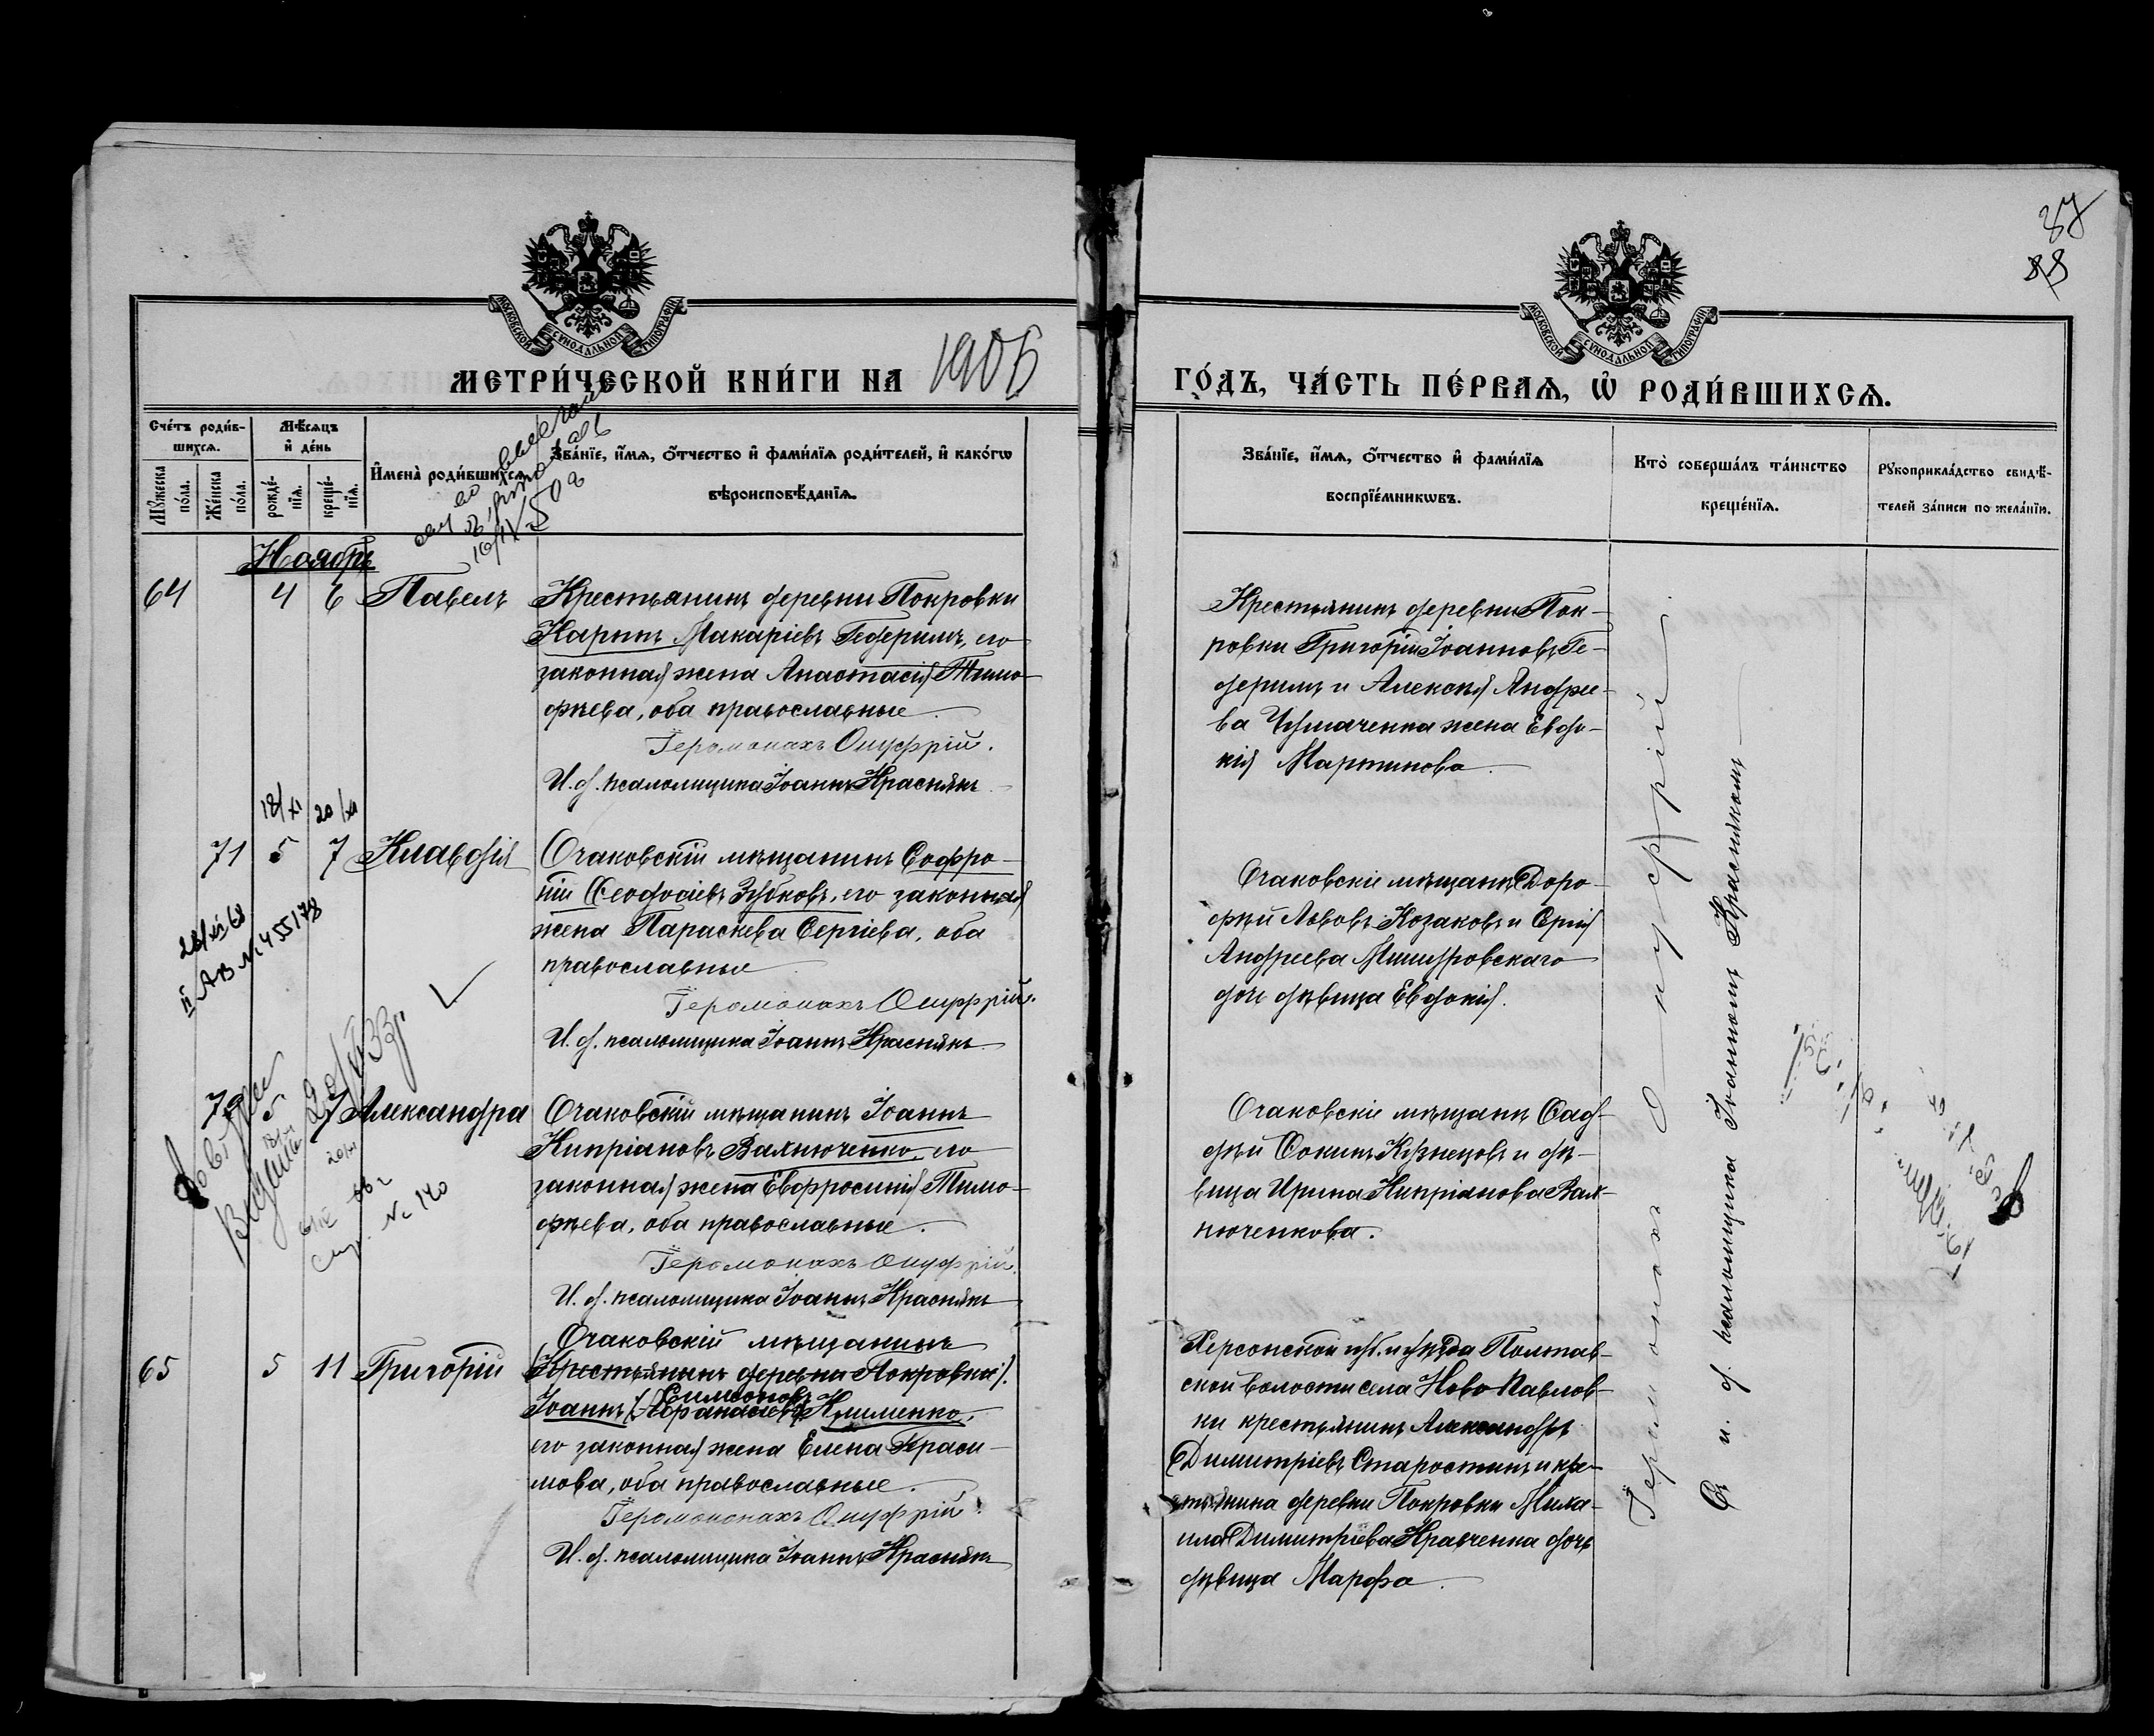 87
88
МОСКОВСКОЙ СѴНОДАЛЬНОЙ ТИПОГРАФІИ
МОСКОВСКОЙ СѴНОДАЛЬНОЙ ТИПОГРАФІИ
МЕТРИ́ЧЕСКОЙ КНИ́ГИ НА 1906 ГО́ДЪ, ЧА́СТЬ ПЕ́РВАѦ, Ѡ҆ РОДИ́ВШИХСѦ.
Сче́тъ роди́в-
шихсѧ.
Мꙋ́жеска по́ла.
Же́нска по́ла.
Мѣ́сѧцъ
и҆ де́нь
рожде́-
нїѧ.
креще́-
нїѧ.
И҆мена̀ роди́вшихсѧ.
Зва́нїе, и҆́мѧ, ѻ҆́тчество и҆ фами́лїѧ роди́телей, и҆ како́гѡ
вѣроисповѣ́данїѧ.
Зва́нїе, и҆́мѧ, ѻ҆́тчество и҆ фами́лїѧ
воспрїе́мникѡвъ.
Кто̀ соверша́лъ та́инство
креще́нїѧ.
Рꙋкоприкла́дство свидѣ́-
телей за́писи по жела́нїю.
Ноябрь
64 4 6 Павелъ
Крестьянинъ деревни Покровки
Карпъ Макаріевъ Гедеримъ, его
законная жена Анастасія Тимо-
фѣева, оба православные.
Іеромонахъ Онуфрій.
И. д. псаломщика Іоаннъ Краснякъ.
Крестьянинъ деревни Пок-
ровки Григорій Іоанновъ Ге-
деримъ и Алексѣя Андрее-
ва Чумаченка жена Евдо-
кія Мартинова.
18/XI 20/XI
71 5 7 Клавдія
Очаковскій мѣщанинъ Софро-
ній Ѳеодосіевъ Зубковъ, его законная
жена Параскева Сергіева, оба
православные
Іеромонахъ Онуфрій.
И. д. псаломщика Іоаннъ Краснякъ.
Очаковскіе мѣщане Доро-
фѣй Львовъ Козаковъ и Сергія
Андреева
дочь дѣвица Евдокія.
II АВ № 455178
72 5 7 Александра
Очаковскій мѣщанинъ Іоаннъ
Кипріановъ Вахнюченко, его
законная жена Евфросинія Тимо-
фѣева, оба православные.
Іеромонахъ Онуфрій.
И. д. псаломщика Іоаннъ Краснякъ
Очаковскіе мѣщане Ѳад-
дѣй Ѳокинъ Кузнецовъ и дѣ-
вица Ирина Кипріанова Вах-
нюченкова.
№ 140
65 5 11 Григорій
Очаковскій мѣщанинъ
(Крестьянинъ деревни Покровки).
Симеоновъ
Іоаннъ (Афанасіевъ) Клименко,
его законная жена Елена Гераси-
мова, оба православные.
Іеромонахъ Онуфрій.
И. д. псаломщика Іоаннъ Краснякъ
Херсонской губ. и уѣзда Полтав-
ской волости села Ново Павлов-
ки крестьянинъ Александръ
Димитріевъ Старостинъ и кре-
стьянина деревни Покровки Миха-
ила Димитріева Кравченка дочь
дѣвица Марфа.
Іеромонахъ Онуфрій.
Съ и. д. псаломщика Іоанномъ Краснякомъ